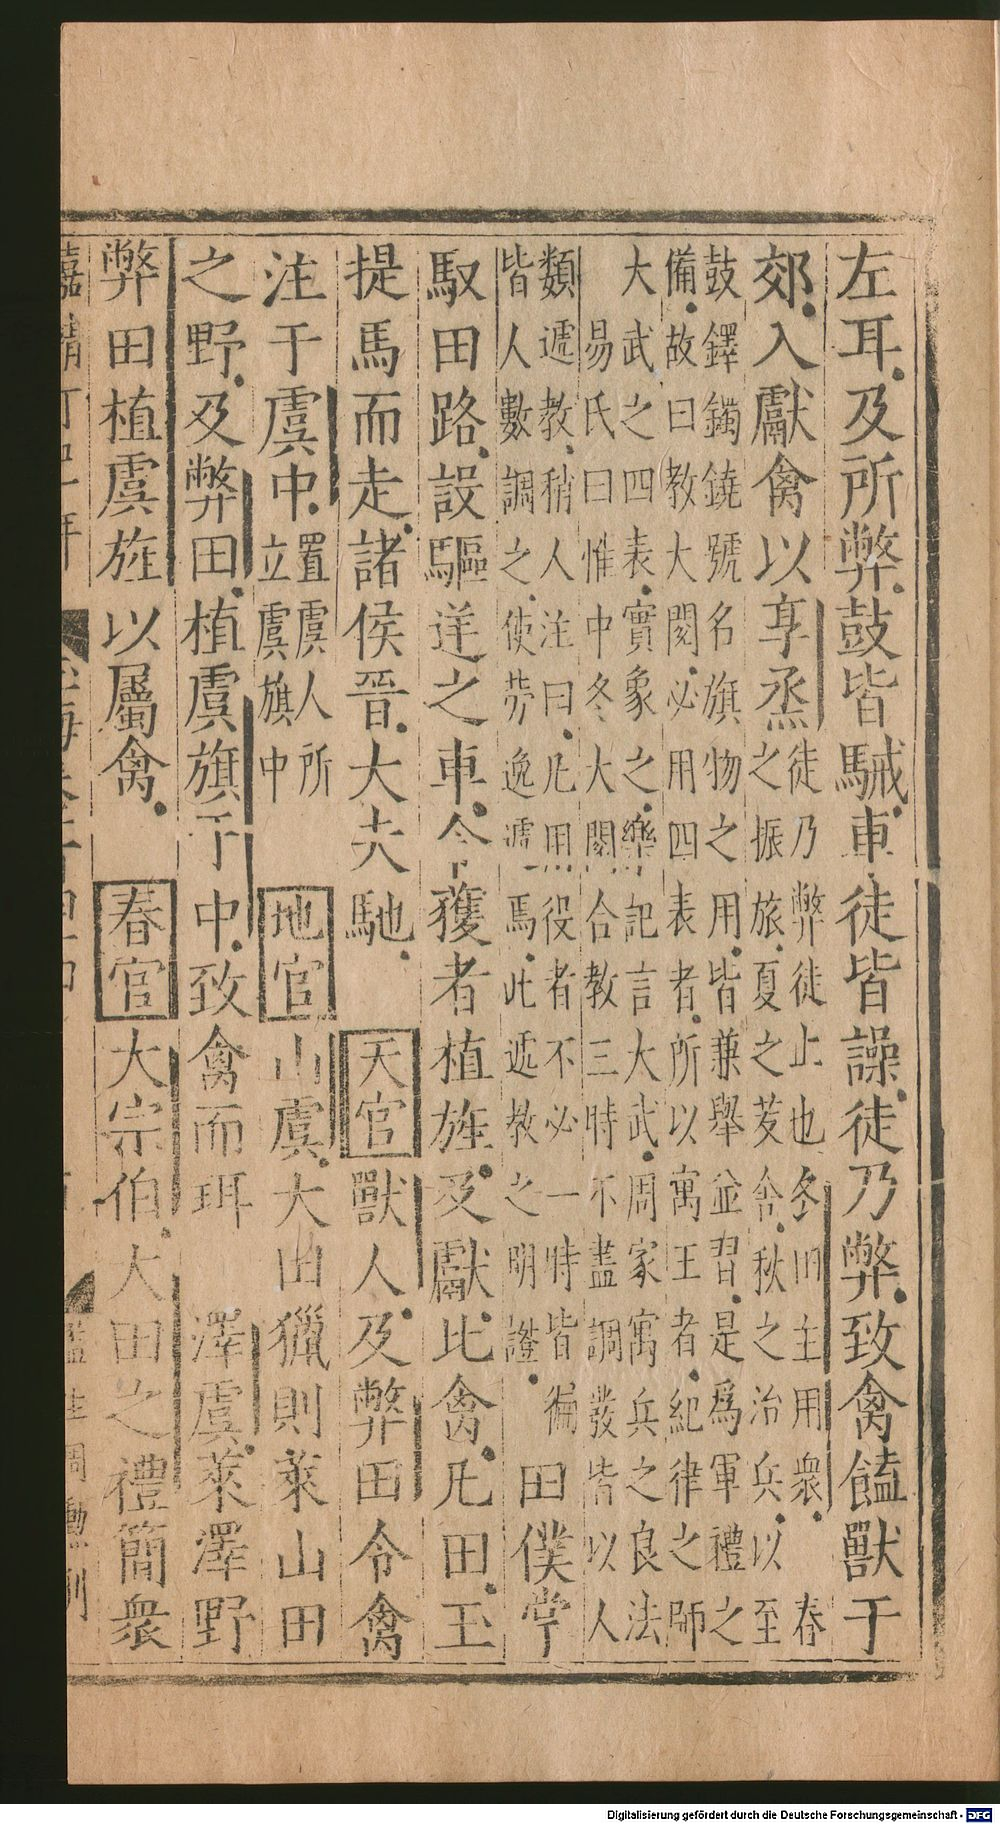 左耳及所弊鼓皆駴車徒皆譟徒乃弊致禽饁獸于
郊入獻禽以享烝徒乃弊徒止也冬田主用衆春
之振旅夏之茇舍秋之治兵以至
鼓鐸鐲鐃號名旗物之用皆兼舉並習是爲軍禮之
備故曰教大閱必用四表者所以寓王者紀律之師
大武之四表實象之樂記言大武周家寓兵之良法
易氏曰惟中冬大閱合教三時不盡調發皆以人
類遞教稍人注曰凡用役者不必一時皆徧
皆人數調之使勞逸遞焉此遞教之明證
田僕掌
馭田路設驅逆之車令獲者植旌及獻比禽凡田王
提馬而走諸侯晉大夫馳
天官獸人及弊田令禽
注于虞中置虞人所
立虞旗中
地官山虞大田獵則萊山田
之野及弊田植虞旗于中致禽而珥
澤虞萊澤野
弊田植虞旌以屬禽
春官大宗伯大田之禮簡衆
嘉靖丁酉年
玉海卷
監生周
Digitalisierung gefördert durch die Deutsche Forschungsgemeinschaft - DFG